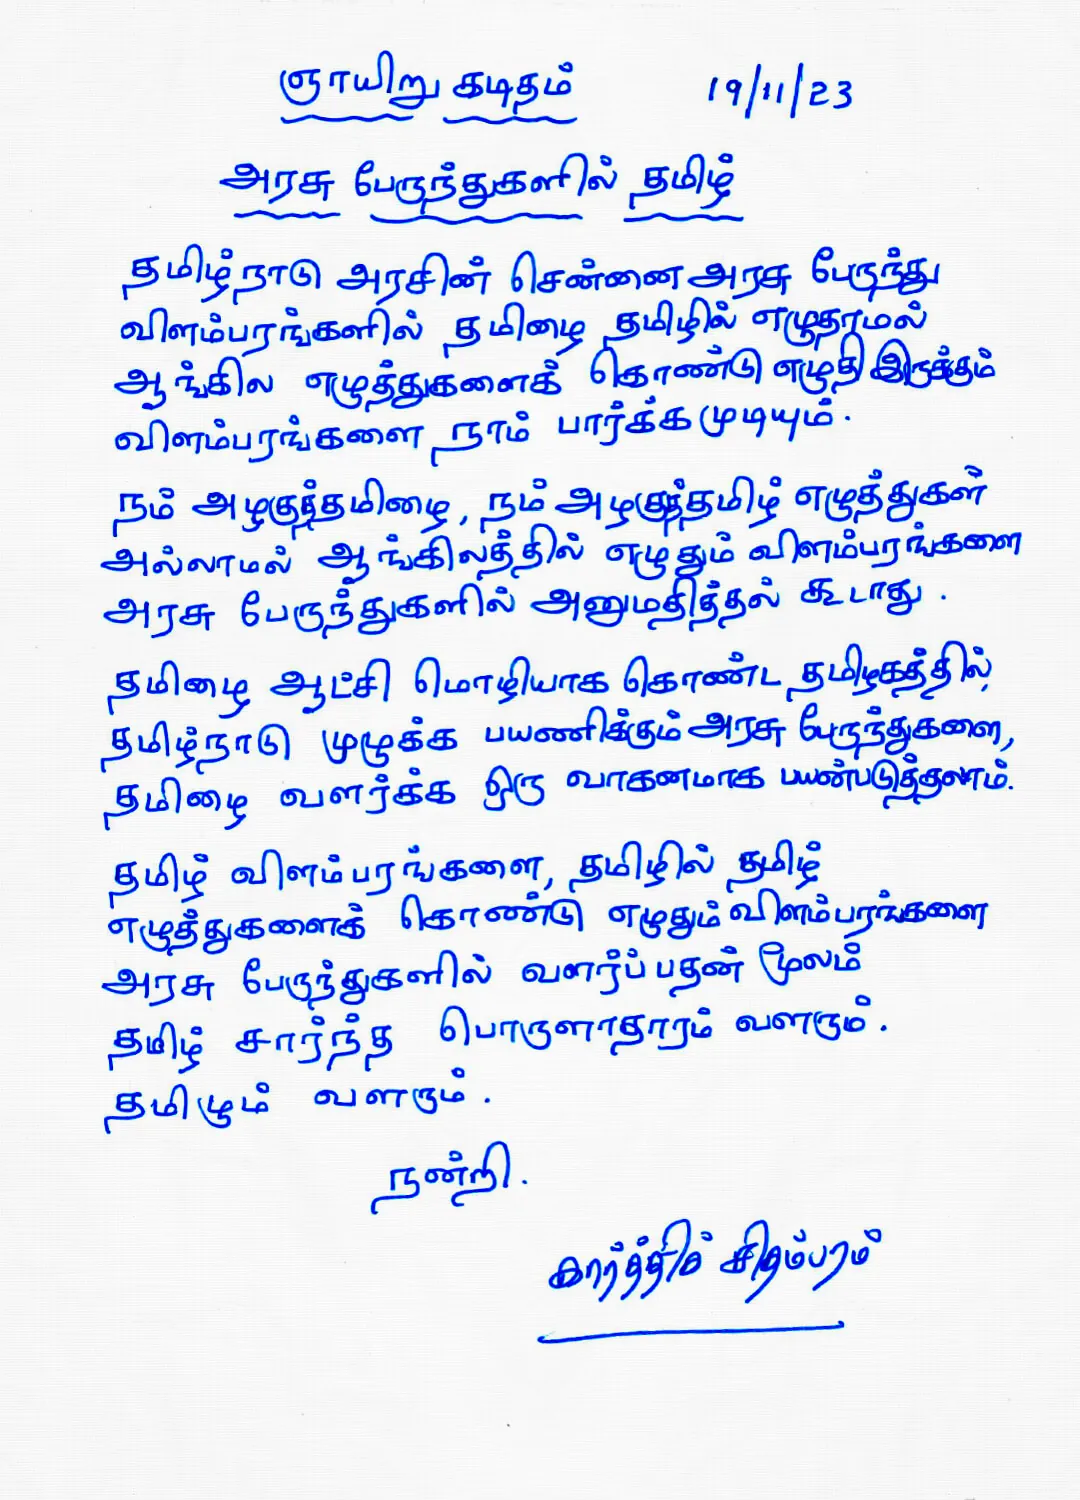 ஞாயிறு கடிதம் 19/11/23
அரசு பேருந்துகளில் தமிழ்
தமிழ்நாடு அரசின் சென்னை அரசு பேருந்து
விளம்பரங்களில் தமிழை தமிழில் எழுதாமல்
ஆங்கில எழுத்துகளைக் கொண்டு எழுதி இருக்கும்
விளம்பரங்களை நாம் பார்க்க முடியும்.
நம் அழகுத்தமிழை, நம் அழகுத்தமிழ் எழுத்துகள்
அல்லாமல் ஆங்கிலத்தில் எழுதும் விளம்பரங்களை
அரசு பேருந்துகளில் அனுமதித்தல் கூடாது.
தமிழை ஆட்சி மொழியாக கொண்ட தமிழகத்தில்,
தமிழ்நாடு முழுக்க பயணிக்கும் அரசு பேருந்துகளை,
தமிழை வளர்க்க ஒரு வாகனமாக பயன்படுத்தலாம்.
தமிழ் விளம்பரங்களை, தமிழில் தமிழ்
எழுத்துகளைக் கொண்டு எழுதும் விளம்பரங்களை
அரசு பேருந்துகளில் வளர்ப்பதன் மூலம்
தமிழ் சார்ந்த பொருளாதாரம் வளரும்.
தமிழும் வளரும்.
நன்றி.
கார்த்திக் சிதம்பரம்